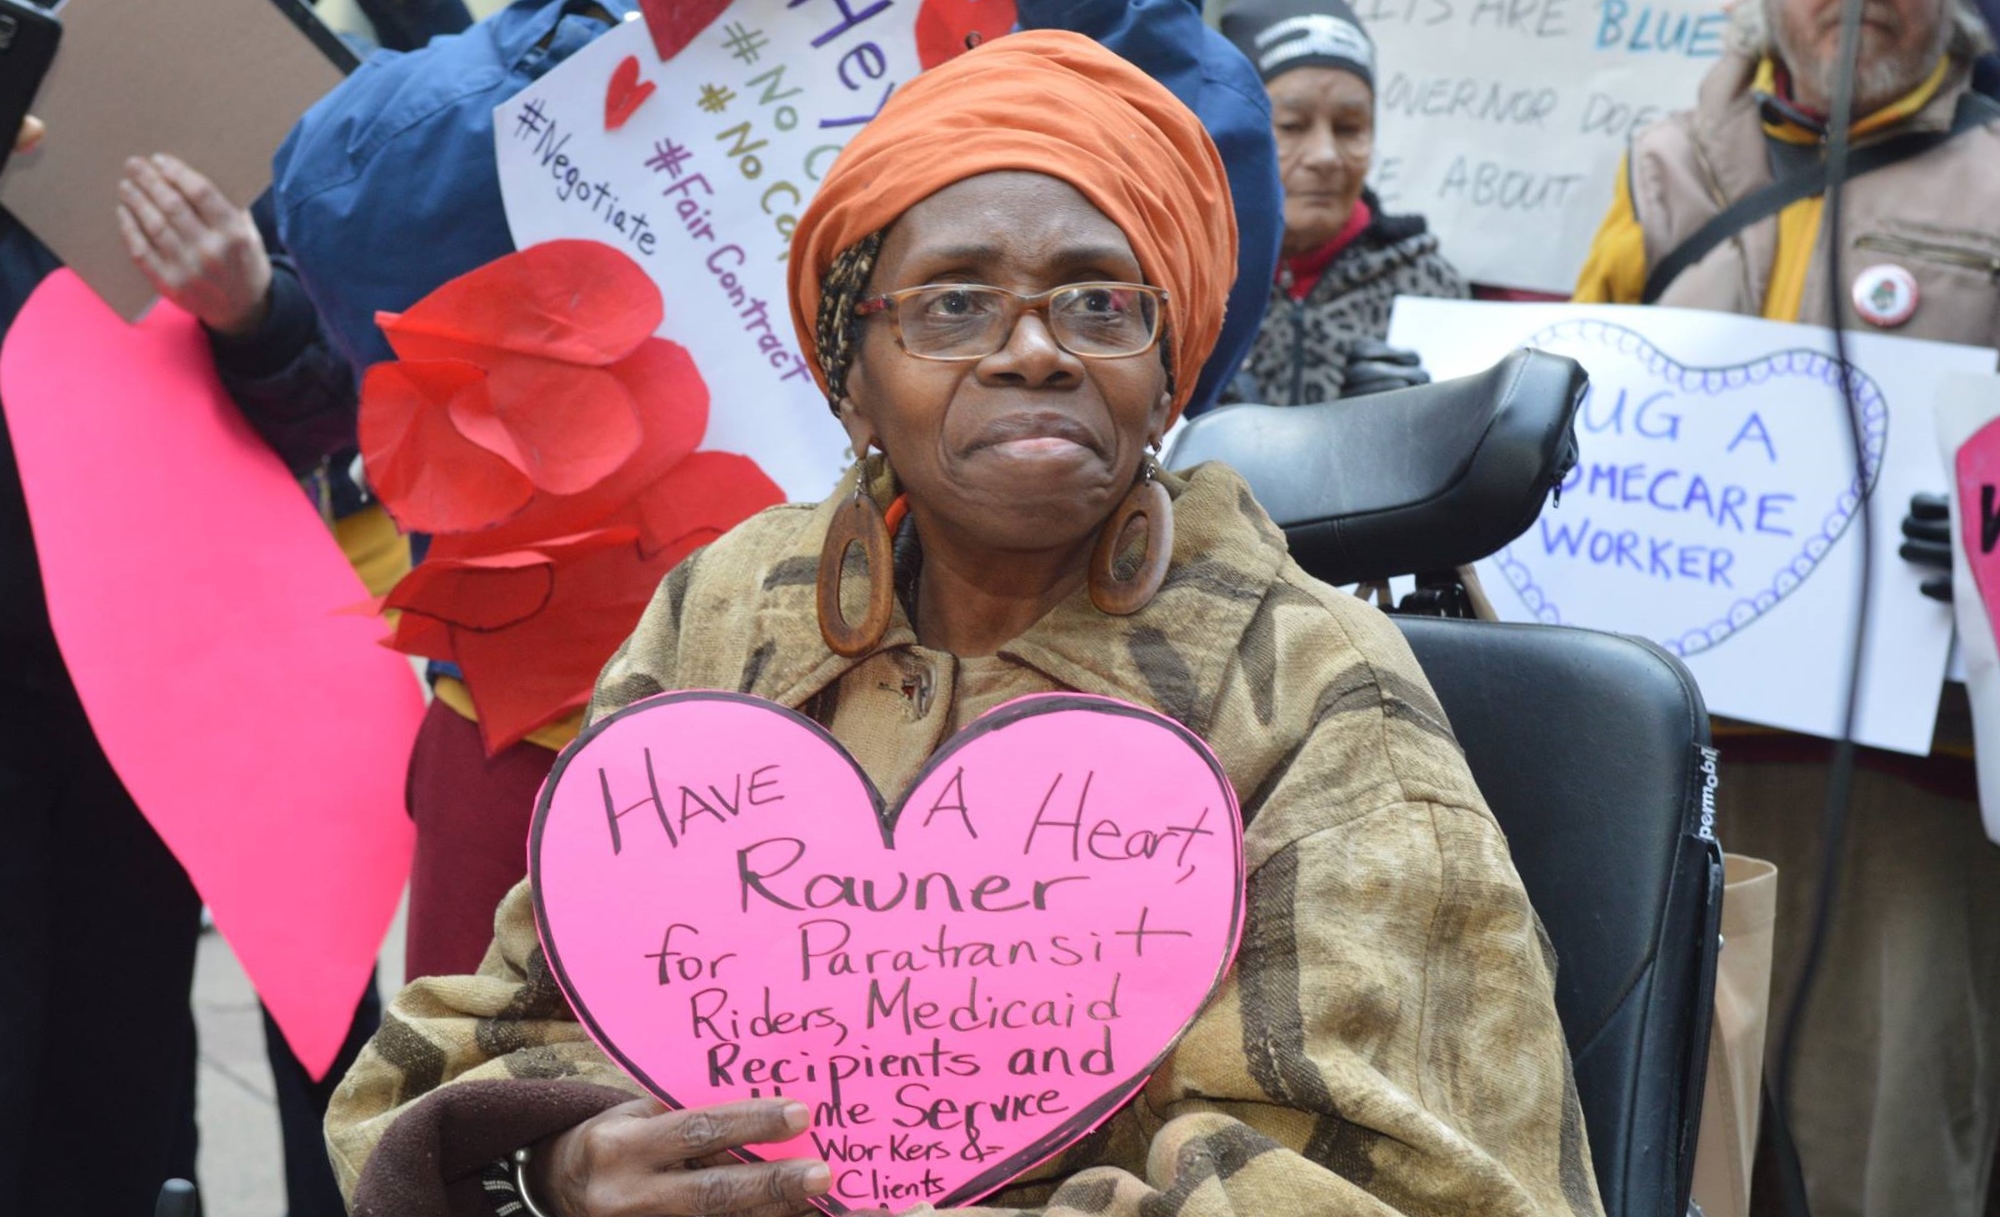 Hey
#No
#No
#Negotiate
#Fair Contract
ARE BLUE
OVERNOR
ABOUT
UG A
OMECARE
WORKER
permobil
HAVE A Heart,
Rauner
for Paratransit
Riders, Medicaid
Recipients and
Home Service
Workers &
Clients